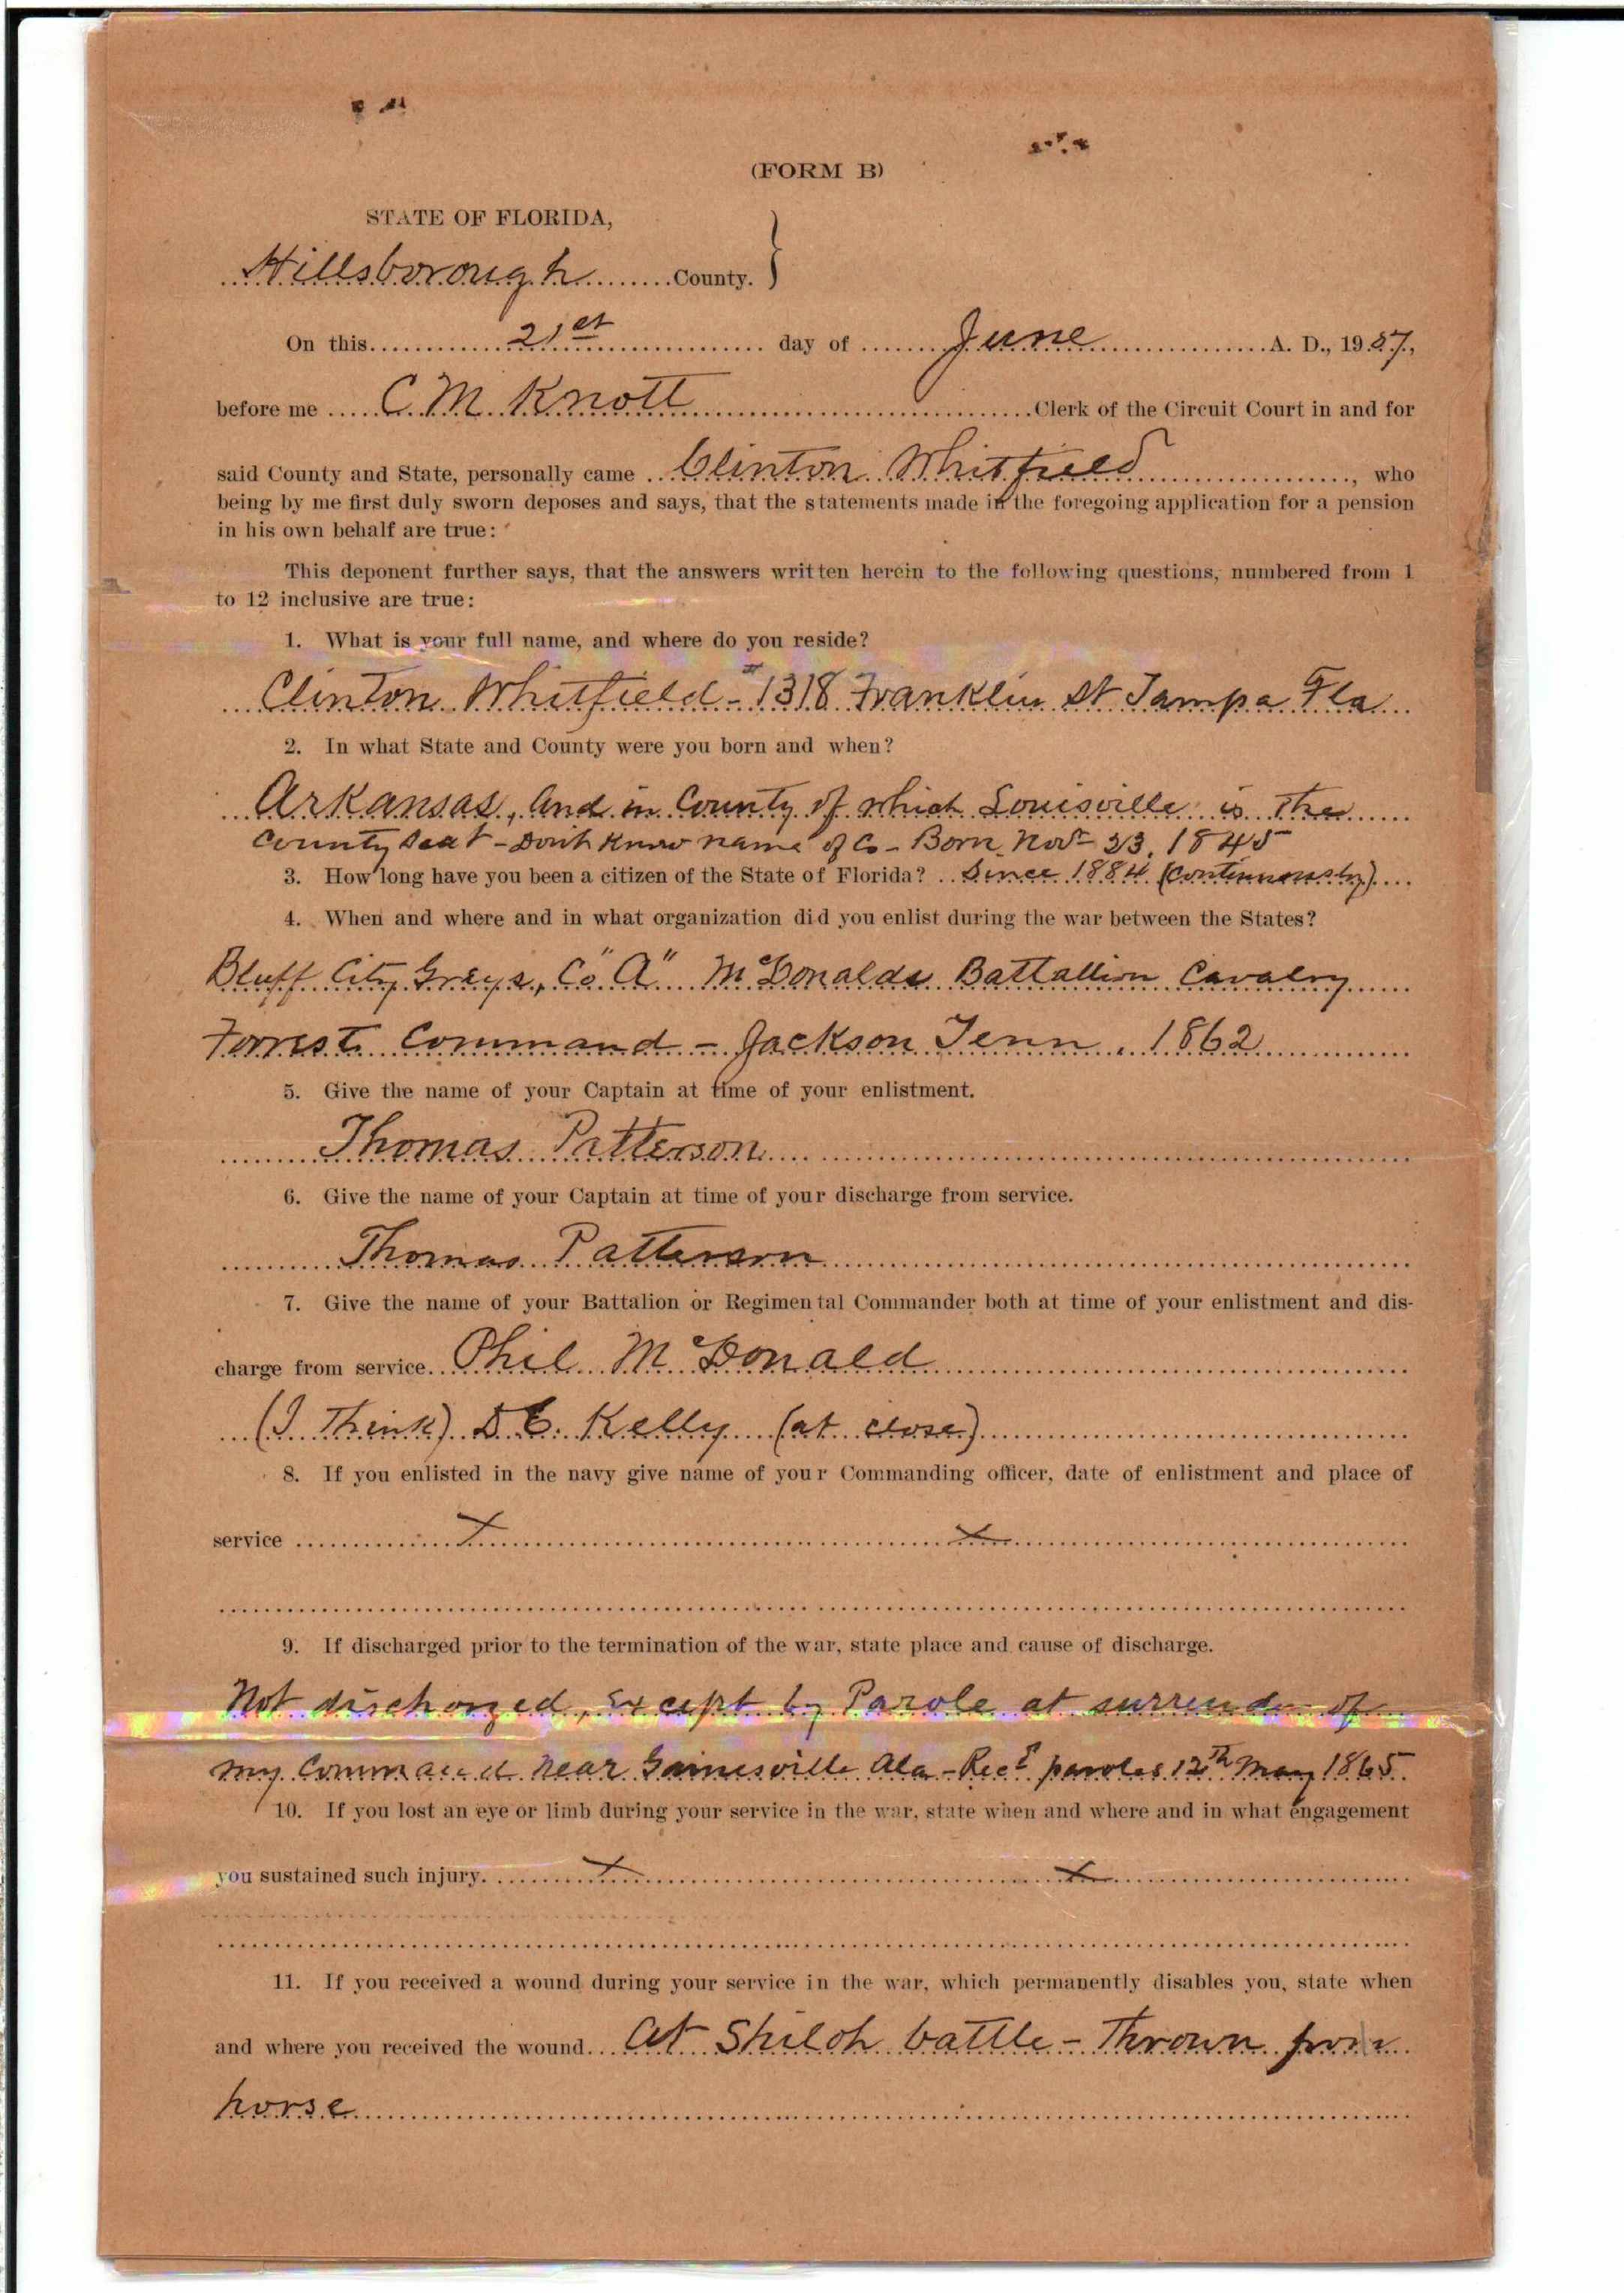 (FORM B)
STATE OF FLORIDA,
Hillsborough County.
On this 21st day of June A. D., 1907,
before me C M Knott Clerk of the Circuit Court in and for
said County and State, personally came Clinton Whitfield, who
being by me first duly sworn deposes and says, that the statements made in the foregoing application for a pension
in his own behalf are true:
This deponent further says, that the answers written herein to the following questions, numbered from 1
to 12 inclusive are true:
1. What is your full name, and where do you reside?
Clinton Whitfield - 1318 Franklin St Tampa Fla
2. In what State and County were you born and when?
Arkansas, And in County of which Louisville is the
County Seat - Don't Know name of Co - Born Nov 23, 1845
3. How long have you been a citizen of the State of Florida? Since 1884 (continuously)
4. When and where and in what organization did you enlist during the war between the States?
Bluff City Greys, Co "A" McDonalds Battallion Cavalry
Forrest Command - Jackson Tenn. 1862
5. Give the name of your Captain at time of your enlistment.
Thomas Patterson
6. Give the name of your Captain at time of your discharge from service.
Thomas Patterson
7. Give the name of your Battalion or Regimental Commander both at time of your enlistment and dis-
charge from service. Phil McDonald
(I Think) D C. Kelly (at close)
8. If you enlisted in the navy give name of your Commanding officer, date of enlistment and place of
service x x
9. If discharged prior to the termination of the war, state place and cause of discharge.
Not discharged, Except by Parole at surrender of
my Command near Gainesville Ala - Recd paroles 12th May 1865
10. If you lost an eye or limb during your service in the war, state when and where and in what engagement
you sustained such injury. x x
11. If you received a wound during your service in the war, which permanently disables you, state when
and where you received the wound. At Shiloh battle - Thrown from
horse